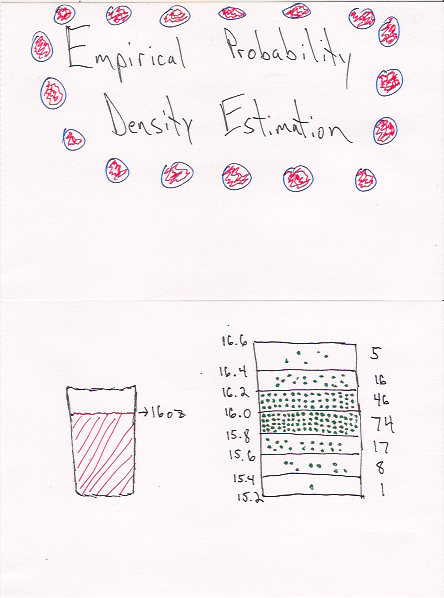 Empirical Probability
Density Estimation
→16oz
16.6
5
16.4
16
16.2
46
16.0
74
15.8
17
15.6
8
15.4
1
15.2